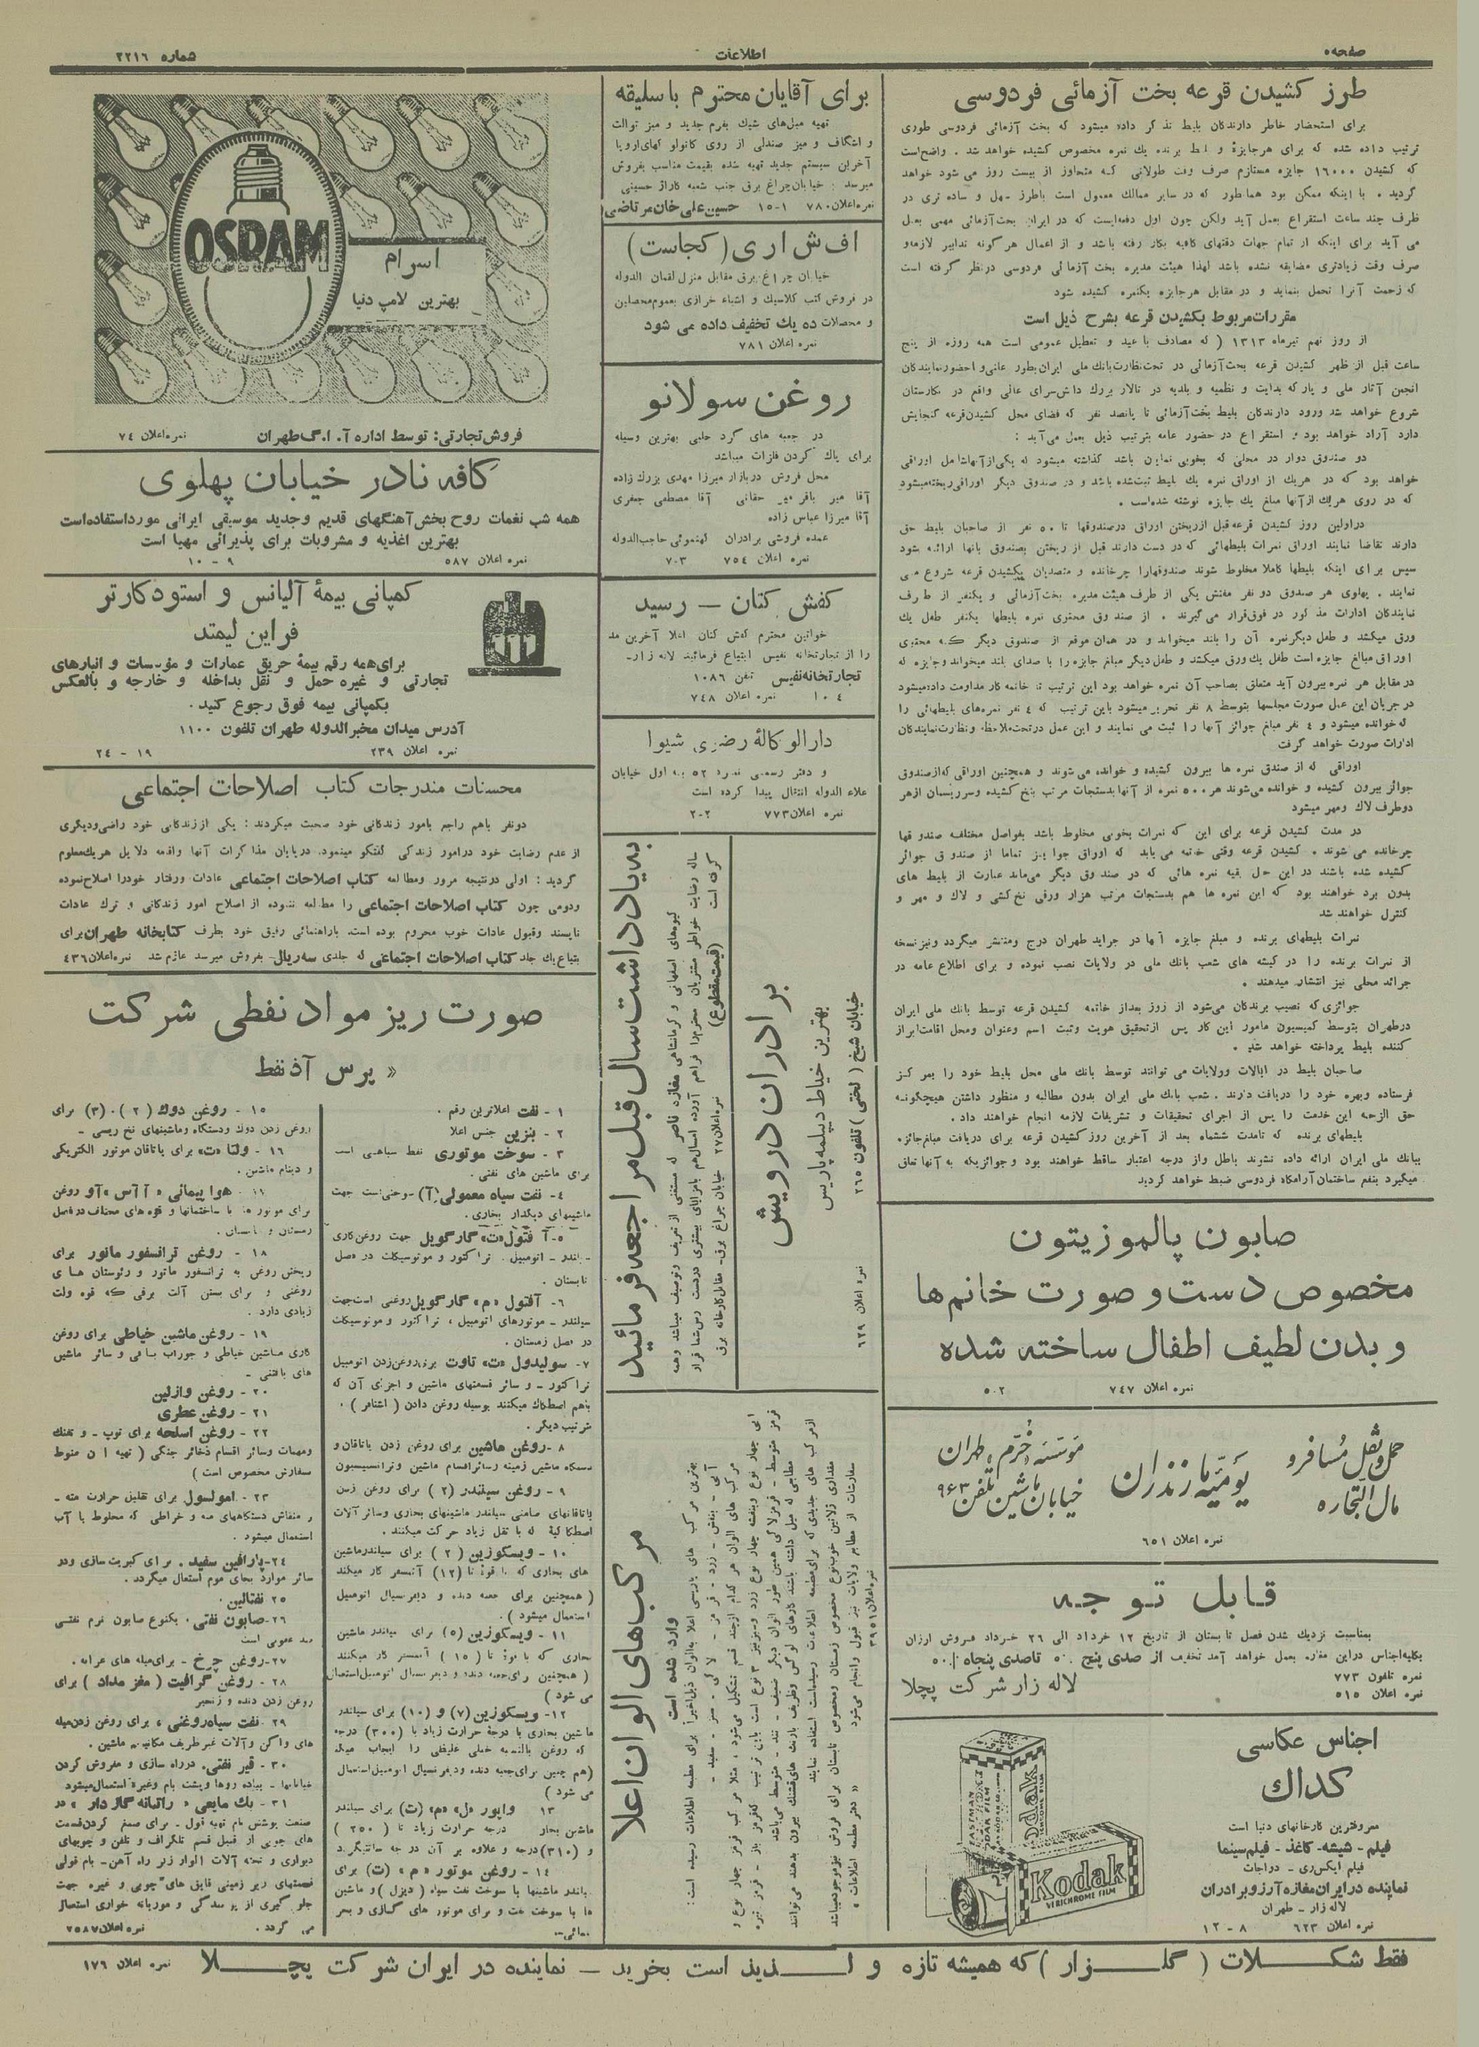 صفحه ۵
اطلاعات
شماره ۲۲۱۶
طرز کشیدن قرعه بخت آزمائی فردوسی
برای استحضار خاطر دارندگان بلیط تذکر داده میشود که بخت آزمائی فردوسی طوری
ترتیب داده شده که برای هرجایزه و بلیط برنده یك نمره مخصوص کشیده خواهد شد . واضح است
که کشیدن ۱۶۰۰۰ جایزه مستلزم صرف وقت طولانی که متجاوز از بیست روز می شود خواهد
گردید . با اینکه ممکن بود همانطور که در سایر ممالك معمول است باطرز سهل و ساده تری در
ظرف چند ساعت استقراع بعمل آید ولکن چون اول دفعه‌ایست که در ایران بخت‌آزمائی مهمی بعمل
می آید برای اینکه از تمام جهات دقتهای کافیه بکار رفته باشد و از اعمال هر گونه تدابیر لازمه و
صرف وقت زیادتری مضایقه نشده باشد لهذا هیئت مدیره بخت آزمائی فردوسی درنظر گرفته است
که زحمت آنرا تحمل بنماید و در مقابل هرجایزه یکنمره کشیده شود
مقررات مربوط بکشیدن قرعه بشرح ذیل است
از روز نهم تیرماه ۱۳۱۳ ( که مصادف با عید و تعطیل عمومی است همه روزه از پنج
ساعت قبل از ظهر کشیدن قرعه بخت‌آزمائی در تحت نظارت بانك ملی ایران بطور علنی و احضور نمایندگان
انجمن آثار ملی و پارکه بدایت و نظمیه و بلدیه در تالار بزرك دانش‌سرای عالی واقع در نگارستان
شروع خواهد شد ورود دارندگان بلیط بخت‌آزمائی تا پانصد نفر که فضای محل کشیدن قرعه گنجایش
دارد آزاد خواهد بود و استقراع در حضور عامه بترتیب ذیل بعمل می‌آید :
دو صندوق دوار در محلی که بخوبی نمایان باشد گذاشته میشود که یکی از آنها شامل اوراقی
خواهد بود که در هریك از اوراق نمره یك بلیط ثبت شده باشد و در صندوق دیگر اوراقی ریخته میشود
که در روی هریك از آنها مبلغ یك جایزه نوشته شده‌است .
دراولین روز کشیدن قرعه قبل ازریختن اوراق درصندوقها تا ۵۰ نفر از صاحبان بلیط حق
دارند تقاضا نمایند اوراق نمرات بلیطهائی که در دست دارند قبل از ریختن بصندوق بانها ارائه بشود
سپس برای اینکه بلیطها کاملا مخلوط شوند صندوقهارا چرخانده و متصدیان بکشیدن قرعه شروع می
نمایند . پهلوی هر صندوق دو نفر مفتش یکی از طرف هیئت مدیره بخت‌آزمائی و یکنفر از طرف
نمایندگان ادارات مذکور در فوق قرار می‌گیرند . از صندوق محتوی نمره بلیطها یکنفر طفل یك
ورق میکشد و طفل دیگر نمره آن را بلند میخواند و در همان موقع از صندوق دیگر که محتوی
اوراق مبالغ جایزه است طفل یك ورق میکشد و طفل دیگر مبلغ جایزه را با صدای بلند میخواند و جایزه که
در مقابل هر نمره بیرون آید متعلق بصاحب آن نمره خواهد بود این ترتیب تا خاتمه کار مداومت داده میشود
در جریان این عمل صورت مجلسها بتوسط ۸ نفر تحریر میشود باین ترتیب که ۴ نفر نمره‌های بلیطهائی را
که خوانده میشود و ۴ نفر مبلغ جوائز آنها را ثبت می نمایند و این عمل درتحت ملاحظه و نظارت نمایندگان
ادارات صورت خواهد گرفت
اوراقی که از صندق نمره ها بیرون کشیده و خوانده می‌شوند و همچنین اوراقی که از صندوق
جوائز بیرون کشیده و خوانده می‌شوند هر ۵۰۰ نمره از آنها بدستجات مرتب بانخ کشیده و سر ریسمان ازهر
دوطرف لاك ومهر میشود
در مدت کشیدن قرعه برای این که نمرات بخوبی مخلوط باشد بفواصل مختلفه صندوقها
چرخانده می شوند . کشیدن قرعه وقتی خاتمه می یابد که اوراق جوایز تماما از صندوق جوائز
کشیده شده باشند در این حال بقیه نمره هائی که در صندوق دیگر می‌ماند عبارت از بلیط های
بدون برد خواهند بود که این نمره ها هم بدستجات مرتب هزار ورقی نخ کشی و لاك و مهر و
کنترل خواهند شد
نمرات بلیطهای برنده و مبلغ جایزه آنها در جراید طهران درج ومنتشر میگردد ونیز نسخه
از نمرات برنده را در گیشه های شعب بانك ملی در ولایات نصب نموده و برای اطلاع عامه در
جرائد محلی نیز انتشار میدهند .
جوائزی که نصیب برندگان می‌شود از روز بعد از خاتمه کشیدن قرعه توسط بانك ملی ایران
درطهران بتوسط کمیسیون مامور این کار پس ازتحقیق هویت وثبت اسم وعنوان ومحل اقامت ابراز
کننده بلیط پرداخته خواهد شد .
صاحبان بلیط در ایالات وولایات می توانند توسط بانك ملی محل بلیط خود را بمرکز
فرستاده وبهره خود را دریافت دارند . شعب بانك ملی ایران بدون مطالبه و منظور داشتن هیچگونه
حق الزحمه این خدمت را پس از اجرای تحقیقات و تشریفات لازمه انجام خواهند داد .
بلیطهای برنده که تامدت ششماه بعد از آخرین روز کشیدن قرعه برای دریافت مبلغ جائزه
ببانك ملی ایران ارائه داده نشوند باطل واز درجه اعتبار ساقط خواهند بود و جوائزیکه به آنها تعلق
میگیرد بنفع ساختمان آرامگاه فردوسی ضبط خواهد گردید
صابون پالموزیتون
مخصوص دست و صورت خانم‌ها
و بدن لطیف اطفال ساخته شده
نمره اعلان ۷۴۷
۵-۲
حمل و نقل مسافر و
مال التجاره
یومیه مازندران
موسسه خرم، طهران
خیابان ماشین تلفن ۹۶۳
نمره اعلان ۶۵۱
قابل توجه
بمناسبت نزدیك شدن فصل تابستان از تاریخ ۱۲ خرداد الی ۲۶ خرداد فروش ارزان
بکلیه اجناس دراین مغازه بعمل خواهد آمد تخفیف از صدی پنج تا صدی پنجاه
نمره تلفون ۷۷۳
نمره اعلان ۵۱۵
لاله زار شرکت پچلا
اجناس عکاسی
کداك
معروفترین کارخانهای دنیا است
فیلم - شیشه - کاغذ - فیلم سینما
فیلم ایکس‌ری - دواجات
نماینده در ایران مغازه آرزو برادران
لاله زار - طهران
نمره اعلان ۶۲۳
۸ - ۱۲
EASTMAN
KODAK FILM
Kodak
VERICHROME FILM
برای آقایان محترم با سلیقه
تهیه مبل‌های شیك بفرم جدید و میز توالت
و اشگاف و میز صندلی از روی کاتولوکهای اروپا
آخرین سیستم جدید تهیه شده بقیمت مناسب بفروش
میرسد : خیابان چراغ برق جنب شعبه کاراژ حسینی
نمره اعلان ۷۸۰ ۱-۱۵ حسین علی خان مرتاضی
افشاری ( کجاست )
خیابان چراغ برق مقابل منزل لقمان الدوله
در فروش کتب کلاسیك و اشیاء خرازی بعموم محصلین
و محصلات ده یك تخفیف داده می شود
نمره اعلان ۷۸۱
روغن سولانو
در جعبه های گرد حلبی بهترین وسیله
برای پاك کردن فلزات میباشد
محل فروش در بازار میرزا مهدی بزرك زاده
آقا میر باقر میر حقانی آقا مصطفی جعفری
آقا میرزا عباس زاده
عمده فروشی برادران حاجب‌الدوله
نمره اعلان ۷۵۴ ۳-۷
کفش کتان — رسید
خواتین محترم کفش کتان اعلا آخرین مد
را از تجارتخانه نفیس ابتیاع فرمائید لاله زار-
تجارتخانه نفیس تلفن ۱۰۸۶
نمره اعلان ۷۴۸ ۴-۱۰
دارالوکاله رضوی شیوا
و دفتر رسمی نمره ۵۲ به اول خیابان
علاء الدوله انتقال پیدا کرده است
نمره اعلان ۷۷۳ ۲-۲
به یادداشت سال قبل مراجعه فرمائید
گیوه‌های اصفهانی و کرمانشاهی مغازه ناصر که مستغنی از تعریف وتوصیف میباشد وهمه
ساله رضایت خواطر مشتریان محترم را فراهم آورده امسال هم بامزایای بیشتری دردست رس شما قرار
گرفته است
(قیمت مقطوع)
نمره اعلان ۲۷ خیابان چراغ برق - مقابل کارخانه برق
برادران درویش
بهترین خیاط دیپلمه پاریس
خیابان شیخ ( لختی ) تلفون ۲۶۵
نمره اعلان ۶۲۹
مرکب‌های الوان اعلا
وارد شده است
بهترین مرکب های پاریسی اعلا به الوان ذیل اخیراً برای مطبعه اطلاعات رسیده است :
آبی - بنفش - زرد - قرمز - لاکی - سبز - سفید -
مرکب های الوان هر کدام ازچند قسم تشکیل می‌شود ، مثلا مرکب قرمز چهار نوع و
آبی چهار نوع وبنفش چهار نوع زرد وسبز نیز ۳ نوع است باین ترتیب که قرمز باز - قرمز تیره
قرمز متوسط - قرمز لاکی همین طور الوان دیگر ضعیف - تند - متوسط می‌باشد
مطابعی که میل داشته باشند کارهای لوکس وظریف بارنك های قشنك بیرون بدهند می‌توانند
ازمرکب های جدیدی که برای مطبعه اطلاعات رسیده است استفاده نمایند
مقداری ژلاتین خوب نوع مخصوص زمستان ومخصوص تابستان برای فروش نیز موجود میباشد
سفارشات از مطابع ولایات نیز قبول وانجام می‌شود « دفتر مطبعه اطلاعات »
نمره اعلان ۳۹۵۱
OSRAM
اسرام
بهترین لامپ دنیا
فروش تجارتی: توسط اداره آ. ا. گ طهران
نمره اعلان ۷۴
کافه نادر خیابان پهلوی
همه شب نغمات روح بخش آهنگهای قدیم و جدید موسیقی ایرانی مورد استفاده است
بهترین اغذیه و مشروبات برای پذیرائی مهیا است
نمره اعلان ۵۸۷
۹ - ۱۰
کمپانی بیمهٔ آلیانس و استودکارتر
فراین لیمتد
برای همه رقم بیمهٔ حریق عمارات و مؤسسات و انبارهای
تجارتی و غیره حمل و نقل بداخله و خارجه و بالعکس
بکمپانی بیمه فوق رجوع کنید.
آدرس میدان مخبرالدوله طهران تلفون ۱۱۰۰
نمره اعلان ۲۳۹
۱۹ - ۲۴
محسنات مندرجات کتاب اصلاحات اجتماعی
دونفر باهم راجع بامور زندگانی خود صحبت میکردند : یکی اززندگانی خود راضی ودیگری
از عدم رضایت خود درامور زندگی گفتگو مینمود. درپایان مذاکرات آنها واقعه دلایل هریك معلوم
گردید : اولی درنتیجه مرور ومطالعه کتاب اصلاحات اجتماعی عادات ورفتار خودرا اصلاح نموده
ودومی چون کتاب اصلاحات اجتماعی را مطالعه ننموده از اصلاح امور زندگانی و ترك عادات
ناپسند وقبول عادات خوب محروم بوده است. باراهنمائی رفیق خود بطرف کتابخانه طهران برای
بتیاع یك جلد کتاب اصلاحات اجتماعی که جلدی سه ریال بفروش میرسد عازم شد نمره اعلان ۴۳۶
صورت ریز مواد نفطی شرکت
« پرس آذ نفط
۱ - نفت اعلاترین رقم .
۲ - بنزین جنس اعلا
۳ - سوخت موتوری نفط سیاهی است
برای ماشین های نفتی .
۴- نفت سیاه معمولی (آ) سوختی‌است جهت
ماشینهای دیگدار بخاری.
۵- آفتول «ت» گارگویل جهت روغن کاری
سیلندر - اتومبیل . تراکتور و موتوسیکلت در فصل
تابستان .
۶- آفتول «م» گارگویل روغنی است جهت
سیلندر - موتورهای اتومبیل ، تراکتور و موتوسیکلت
در فصل زمستان.
۷- سولیدول «ت» تاوت برای روغن زدن اتومبیل
تراکتور - و سائر قسمتهای ماشین و اجزای آن که
باهم اصطکاك میکنند بوسیله روغن دادن ( اشتافر ) .
ترتیب دیگر.
۸ - روغن ماشین برای روغن زدن یاتاقان و
تسمکاه ماشین زمینه وسائر اقسام ماشین وترانسمیسیون
۹ - روغن سیلندر (۲) برای روغن زدن
یاتاقانهای ضامنی سیلندر ماشینهای بخاری وسائر آلات
اصطکاکیه که با ثقل زیاد حرکت میکنند .
۱۰ - ویسکوزین (۲) برای سیلندر ماشین
های بخاری که با قوه تا (۱۲) آتمسفر کار میکند
( همچنین برای جعبه دنده و دیفرنسیال اتومبیل
استعمال میشود ) .
۱۱ - ویسکوزین (۵) برای سیلندر ماشین
بخاری که با قوه تا (۱۵) آتمسفر کار میکنند
( همچنین برای جعبه دنده و دیفرنسیال اتومبیل استعمال
می شود )
۱۲- ویسکوزین (۷) و (۱۰) برای سیلندر
ماشین بخاری با درجه حرارت زیاد تا (۳۰۰) درجه
که روغن بالنسبه خیلی غلیظی را ایجاب میکند
(هم چنین برای جعبه دنده ودیفرنسیال اتومبیل استعمال
می شود )
۱۳ واپور «ل» «م» (ت) برای سیلندر
ماشین بخار درجه حرارت زیاد تا (۲۵۰)
و (۳۱۰) درجه و علاوه بر آن درجه سانتیگراد
۱۴ - روغن موتور «م» (ت) برای
سیلندر ماشینها با سوخت نفت سیاه ( دیزل ) و ماشین
ها با سوخت نفت و برای موتور های گازی و بحر
پیمائی.
۱۵ - روغن دوك (۲) . (۳) برای
روغن زدن دوك ودستگاه وماشینهای نخ ریسی -
۱۶ - ولتا «ت» برای یاتاقان موتور الکتریکی
و دینام ماشین.
۱۷ - هوا پیمائی « آ آس » آو روغن
برای موتور ها با ساختمانها و قوه های مختلف در فصل
زمستان و تابستان.
۱۸ - روغن ترانسفورماتور برای
ریختن روغن به ترانسفور ماتور و رئوستان های
روغنی و برای بستن آلت برقی که قوه ولت
زیادی دارد.
۱۹ - روغن ماشین خیاطی برای روغن
کاری ماشین خیاطی و جوراب بافی و سائر ماشین
های بافتنی -
۲۰ - روغن وازلین
۲۱ - روغن عطری
۲۲ - روغن اسلحه برای توپ - و تفنك
ومهمات وسائر اقسام ذخائر جنگی ( تهیه آن منوط
سفارش مخصوص است )
۲۳ - امولسول برای تقلیل حرارت مته -
و منقاش دستگاههای مته و خراطی که مخلوط با آب
استعمال میشود.
۲۴- پارافین سفید . برای کبریت سازی ودر
سائر موارد بجای موم استعمال میگردد.
۲۵ نفتالین.
۲۶- صابون نفتی . یکنوع صابون نرم نفتی
ضد عفونی است
۲۷- روغن چرخ - برای میله های عرابه.
۲۸ - روغن گرافیت ( مغز مداد ) برای
روغن زدن دنده و زنجیر
۲۹ نفت سیاه روغنی ، برای روغن زدن میله
های واگن و آلات غیر ظریف مکانیسم ماشین.
۳۰ - قیر نفتی. درراه سازی و مفروش کردن
خیابانها - پیاده روها وپشت بام وغیره استعمال میشود
۳۱ - پك مایعی « راتیانه گاز دار » در
صنعت پوشش بام تهیه قول - برای صمغ کردن قسمت
های چوبی از قبیل قسم تلگراف و تلفن و چوبهای
دیواری و تخته آلات الوار زیر راه آهن - بام قولی
قسمتهای زیر زمینی قایق های چوبی و غیره جهت
جلوگیری از پوسیدگی و موریانه خواری استعمال
می گردد . نمره اعلان ۷۵۸۷
فقط شکلات ( گلزار ) که همیشه تازه و لذیذ است بخرید — نماینده در ایران شرکت پچلا نمره اعلان ۱۷۶